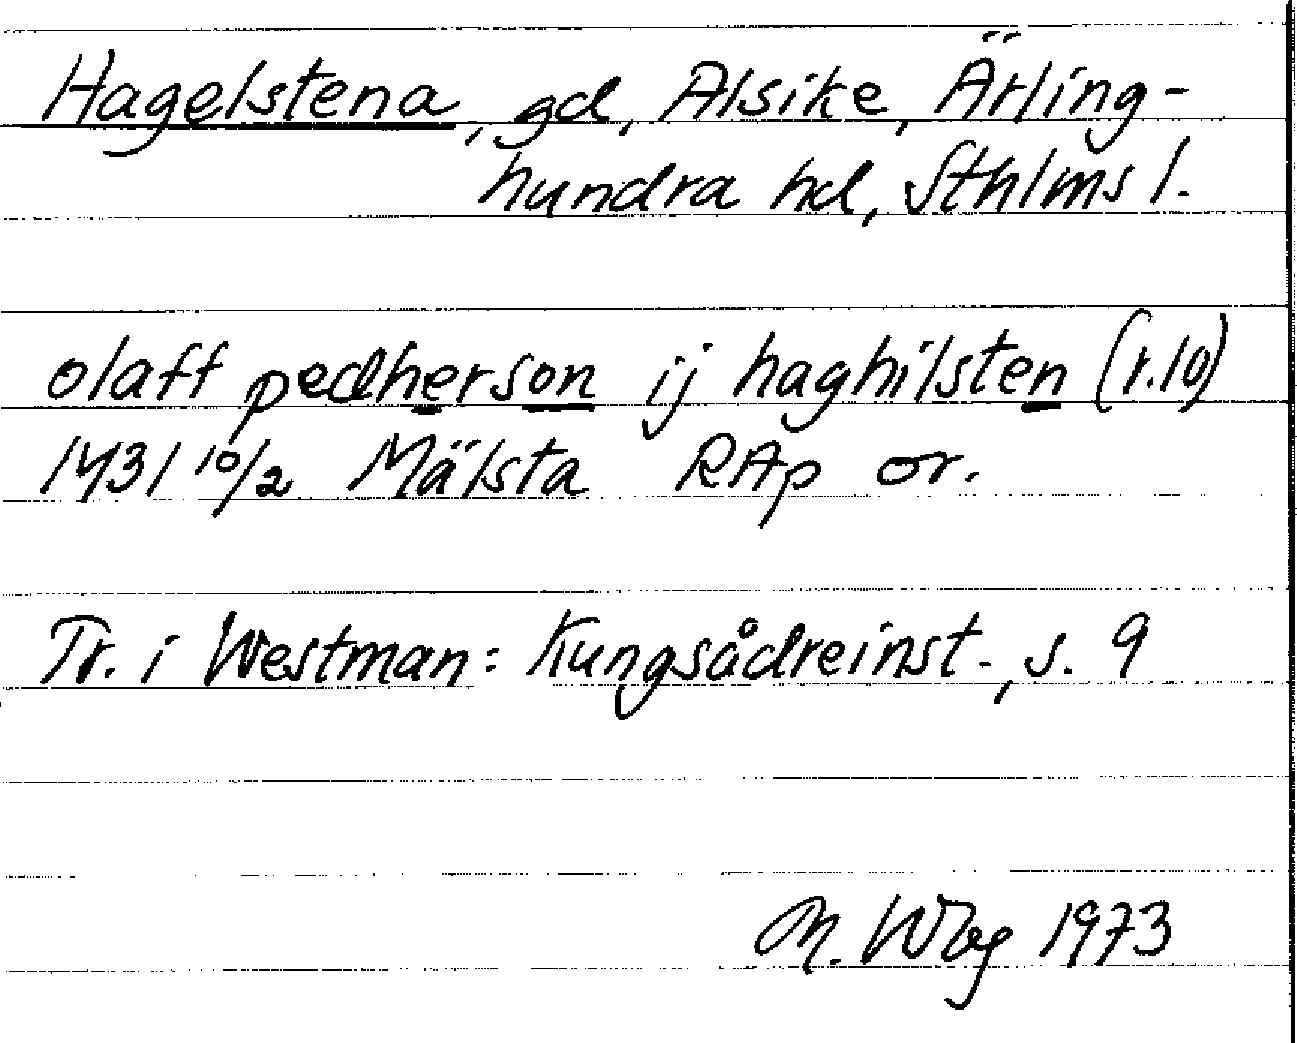 Hagelstena, gd, Alsike, Ärling-
hundra hd, Sthlms l.
olaff pedherson ij haghilsten (r.10)
1431 10/2 Mälsta RAp or.
Tr. i Westman: Kungsådreinst., s. 9
M. Wbg 1973